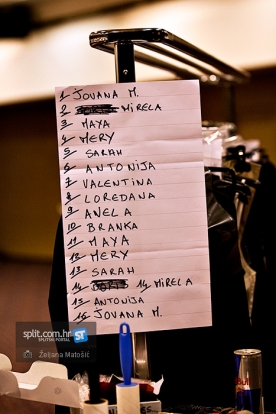 1 JOVANA M.
2 MIRELA
3 MAYA
4 MERY
5 SARAH
6 ANTONIJA
7 VALENTINA
8 LOREDANA
9 ANELA
10 BRANKA
11 MAYA
12 MERY
13 SARAH
14 14 MIRELA
15 ANTONIJA
16 JOVANA M.
split.com.hr ST
SPLITSKI PORTAL
Željana Matošić
Red Bull